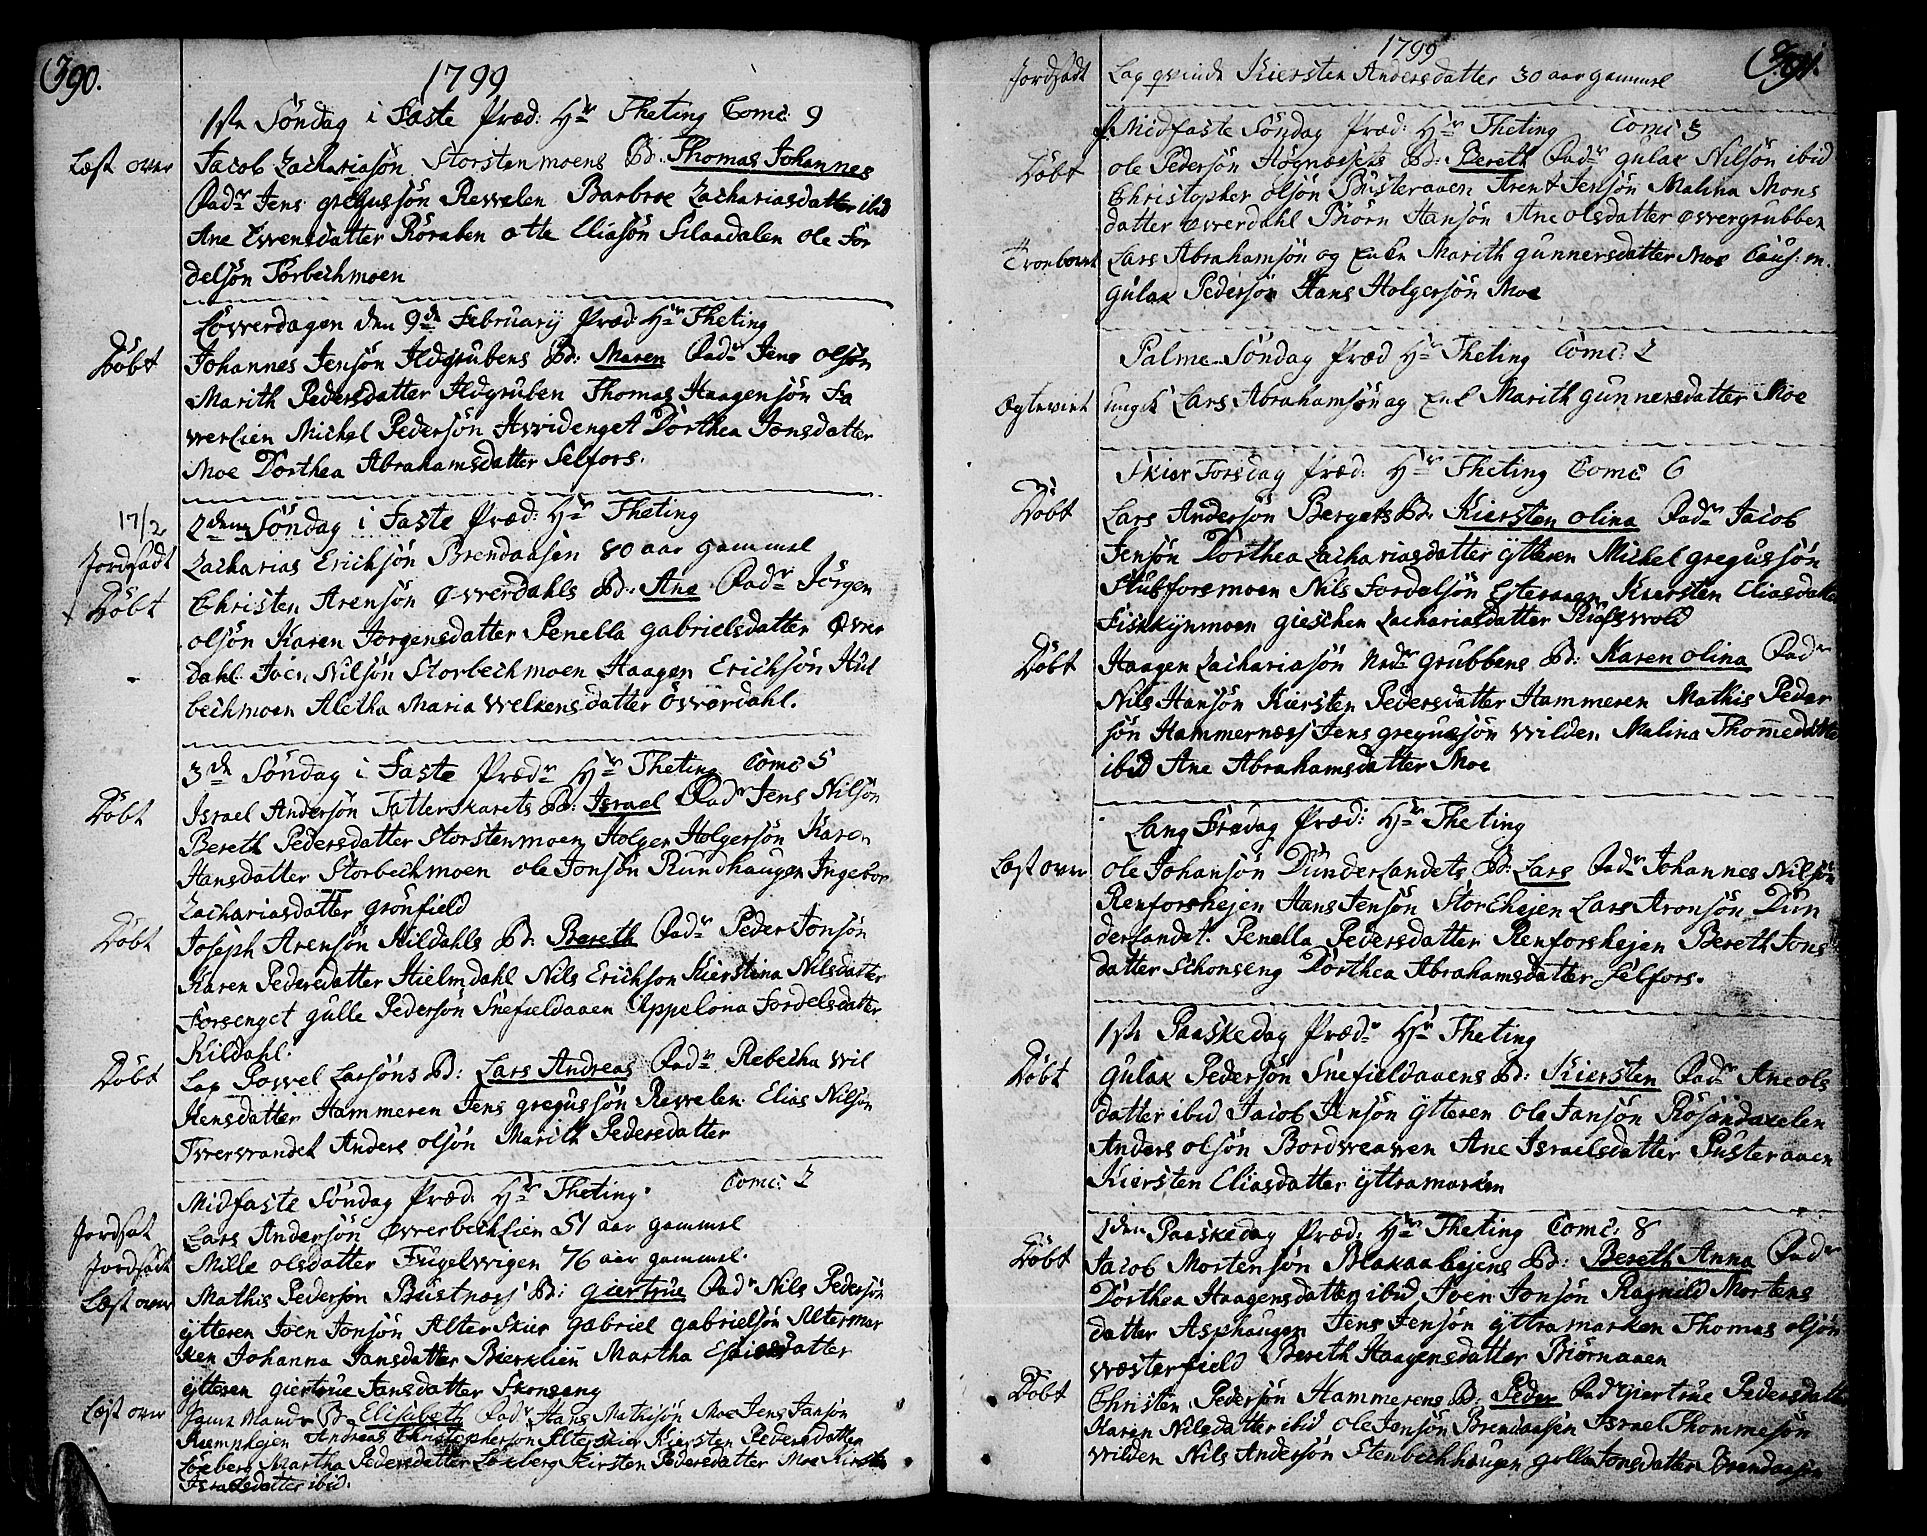 390.
1799
1ste Söndag i Faste Præd: Hr Theting Comc: 9
Læst over Jacob Zachariasön Storstenmoens B: Thomas Johannes
Fadr Jens gregusjön Revelen Barbroe Zachariasdatter ibid
Ane Ewensdatter Röraben otte Eliasön Silaadalen ole For
delsön Storbechmoen
Lowerdagen den 9de February Præd: Hr Theting
Döbt Johannes Jensön Ildgrubens B: Maren Fadr Jens olsön
Marith Pedersdatter Ildgruben Thomas Haagensön Fa
werlien Michel Pedersön Hvidenget Dorthea Jonsdatter
Moe Dorthea Abrahamsdatter Selfors.
17/2 2den Söndag i Faste Præd: Hr Theting
Jordfæst Zacharias Erichsön Brendaasen 80 aar gammel
Döbt Christen Arensön Øwerdahls B: Ane Fadr Jörgen
olsön Karen Jorgensdatter Penella gabrielsdatter Øwer
dahl Joen Nilsön Storbechmoen Haagen Erichsön Hul
bechmoen Aletha Maria welkensdatter Öwerdahl.
3de Söndag i Faste Prædr Hr Theting Comc 5
Döbt Israel Andersön Tatterskarets B: Israel Fadr Jens Nilsön
Bereth Pedersdatter Storstenmoen Holger Holgersön Karen
Hansdatter Storbechmoen ole Jonsön Rundhaugen Ingebor
Zachariasdatter grönfield
Döbt Joseph Arensön Kildahls B: Bereth Fadr Peder Jonsön
Karen Pedersdatter Hielmdahl Nils Erichson Kierstina Nilsdatter
Forsenget gulle Pedersön Snefieldaaen Appelona Fordelsdatter
Kildahl.
Döbt Lap Powel Larsöns B: Lars Andreas Fadr Rebecha wil
kensdatter Hammeren Jens gregusjön Revelen Elias Nilsön
Twerwandet Anders olsön Marith Pedersdatter
Midfaste Söndag Præd: Hr Theting. Comc: 2
Jordfæst Lars Andersön Øwerbechlien 51 aar gammel
Jordfæst Mille olsdatter Fugelwigen 76 aar gammel.
Læst over Mathis Pedersön Bustnæss B: giertrue Fadr Nils Pedersön
ytteren Joen Jonsön Alterskier Gabriel gabrielsön Altermar
ken Johanna Jansdatter Bierklien Martha datter
ytteren giertrue Jansdatter Skonseng
Læst over B: Elisabeth Fadr Hans Mathisön Moe Jens Jansön
Kemphejen Andreas Christophersön Alterskier Kiersten Pedersdatter
Löxberg Martha Pedersdatter Löxberg Kirsten Pedersdatter Moe Kirsten
Israelsdatter ibid.
1799
391.
Jordfæst Lap qvinde Kiersten Andersdatter 30 aar gammel
Midfaste Söndag Præd: Hr Theting Comc 3
Döbt ole Pedersön Högnæssets B: Bereth Fadr gulax Nilsön ibid
Christopher olsön Busteraaen Arent Jensön Malina Mons
datter Øwerdahl Biörn Hansön Ane olsdatter owergrubben
Troelovet Lars Abrahamsön og Enken Marith gunnersdatter Moe Caus: m.
gulax Pedersön Hans Holgersön Moe
Palme Söndag Præd Hr Theting Comc: 2
Egteviet ungk Lars Abrahamsön og Enk Marith gunnersdatter Moe
Skier Torsdag Præd: Hr Theting Comc 6
Döbt Lars Andersön Bergets B: Kiersten olina Fadr Jacob
Jensön Dorthea Zachariasdatter ytteren Michel gregusjön
Stubforsmoen Nils Fordelsön Esteraaen Kiersten Eliasdatter
Fiskkynmoen gieschen Zachariasdatter Rufswold
Döbt Haagen Zachariasön Nedr grubbens B: Karen olina Fadr
Nils Hansön Kiersten Pedersdatter Hammeren Mathis Peder
sön Hammernæss Jens gregusjön wilden Malina Thomedatter
ibid Ane Abrahamsdatter Moe
Lang Fredag Præd: Hr Theting
Læst over ole Johansön Dunderlandets B: Lars Fadr Johannes Nilsön
Renforshejen Hans Jensön Storehejen Lars Aronsön Dun
derlandet. Penella Pedersdatter Renforshejen Bereth Jons
datter Schonseng Dorthea Abrahamsdatter Selfors.
1ste Paaskedag Prædr Hr Theting
Döbt gulax Pedersön Snefieldaaens B: Kiersten Fadr Ane ols
datter ibid Jacob Jensön ytteren ole Jansön Rösandaxelen
Anders olsön Bordweawen Ane Israelsdatter Pusteraaen
Kiersten Eliasdatter yttramarken
2den Paaskedag Præd: Hr Theting Comc: 8
Döbt Jacob Mortensön Blakaahejens B: Bereth Anna Fadr
Dorthea Haagensdatter ibid Joen Jonsön Ragnild Mortens
datter Asphaugen Jens Jensön yttramarken Thomas olsön
wæsterfield Bereth Haagensdatter Biörnaaen
Döbt Christen Pedersön Hammerens B: Peder Fadr giertrue Pedersdatter
Karen Nilsdatter ibid ole Jonsön Brendaasen Israel Thommesön
wilden Nils Andersön Stenbechhaugen golla Jonsdatter Brendaasen